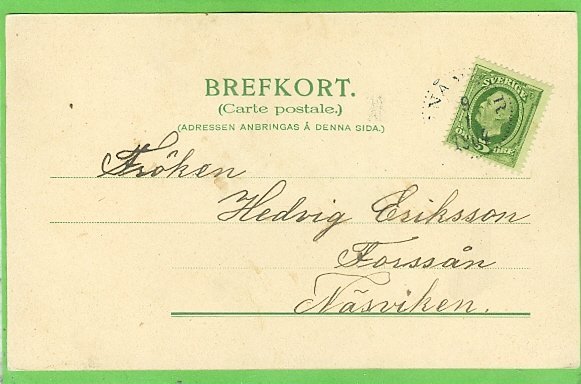 BREFKORT.
(Carte postale.)
(ADRESSEN ANBRINGAS Å DENNA SIDA.)
SVERIGE
5 ÖRE
Fröken
Hedvig Eriksson
Forssån
Näsviken.